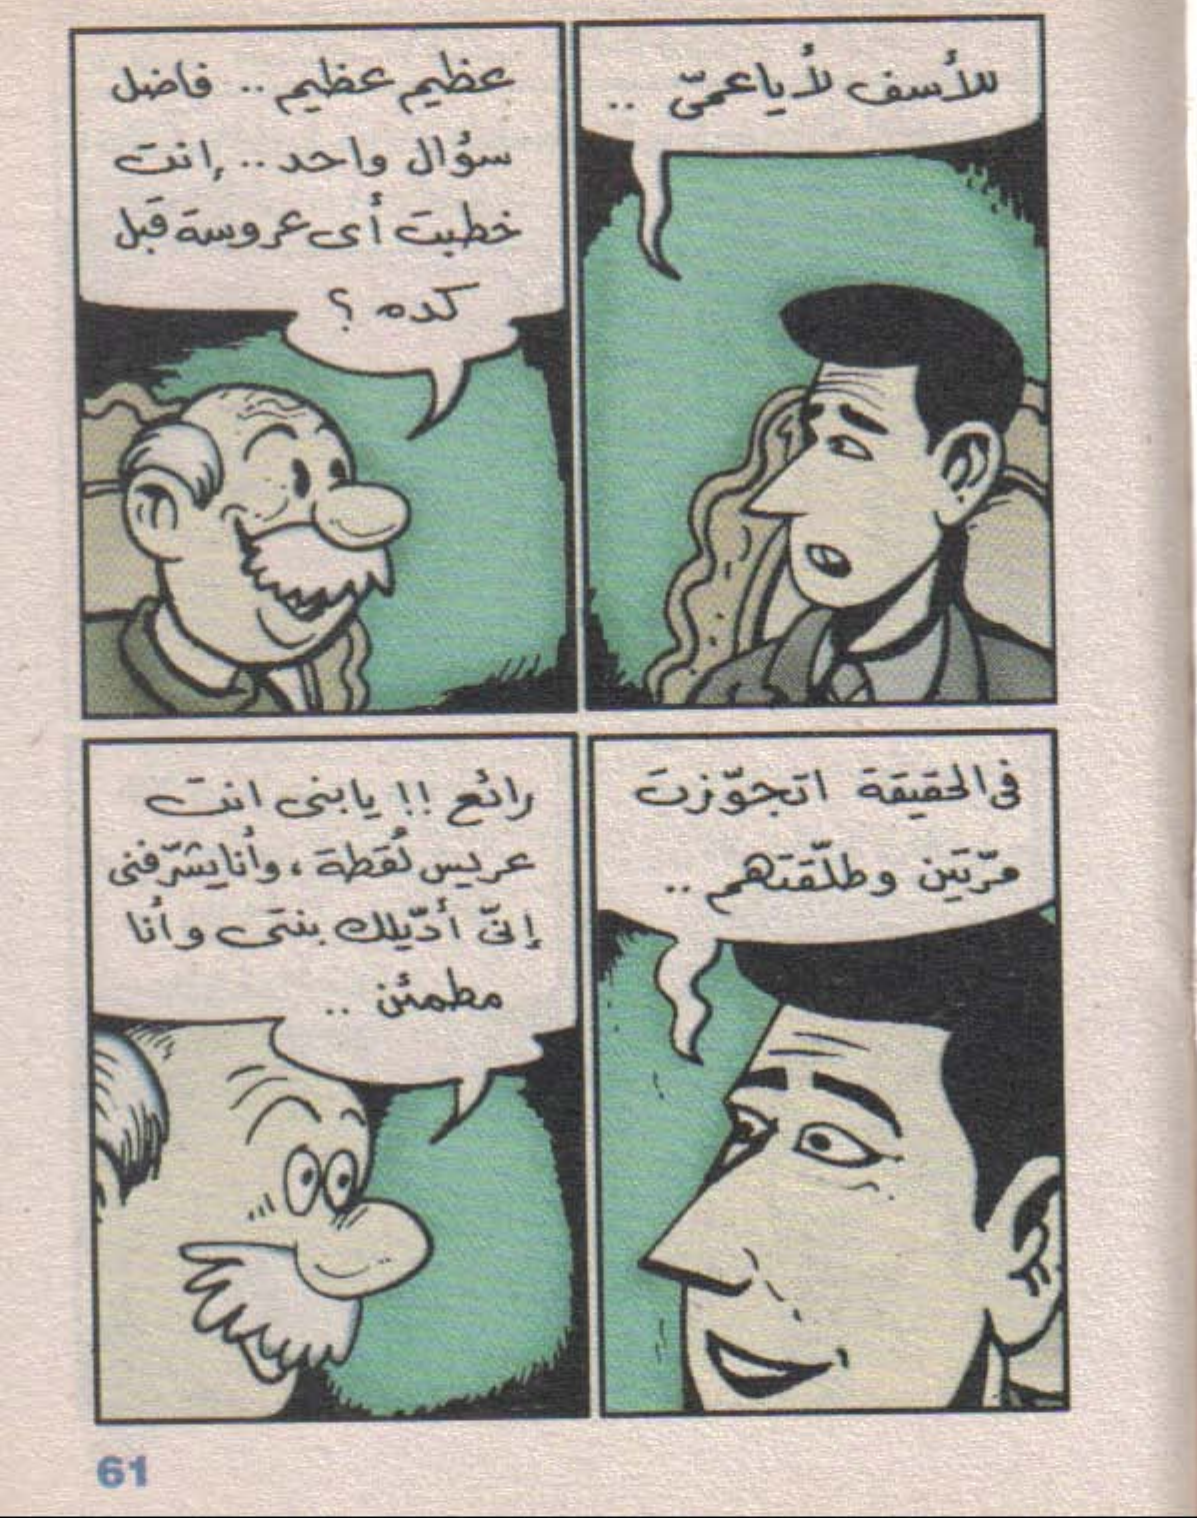 للأسف لأ يا عمّى ..
عظيم عظيم .. فاضل
سؤال واحد .. إنت
خطبت أى عروسة قبل
كده ؟
فى الحقيقة اتجوّزت
مرّتين وطلّقتهم ..
رائع !! يابنى انت
عريس لُقطة ، وأنا يشرّفنى
إنّى أدّيلك بنتى وأنا
مطمئن ..
61